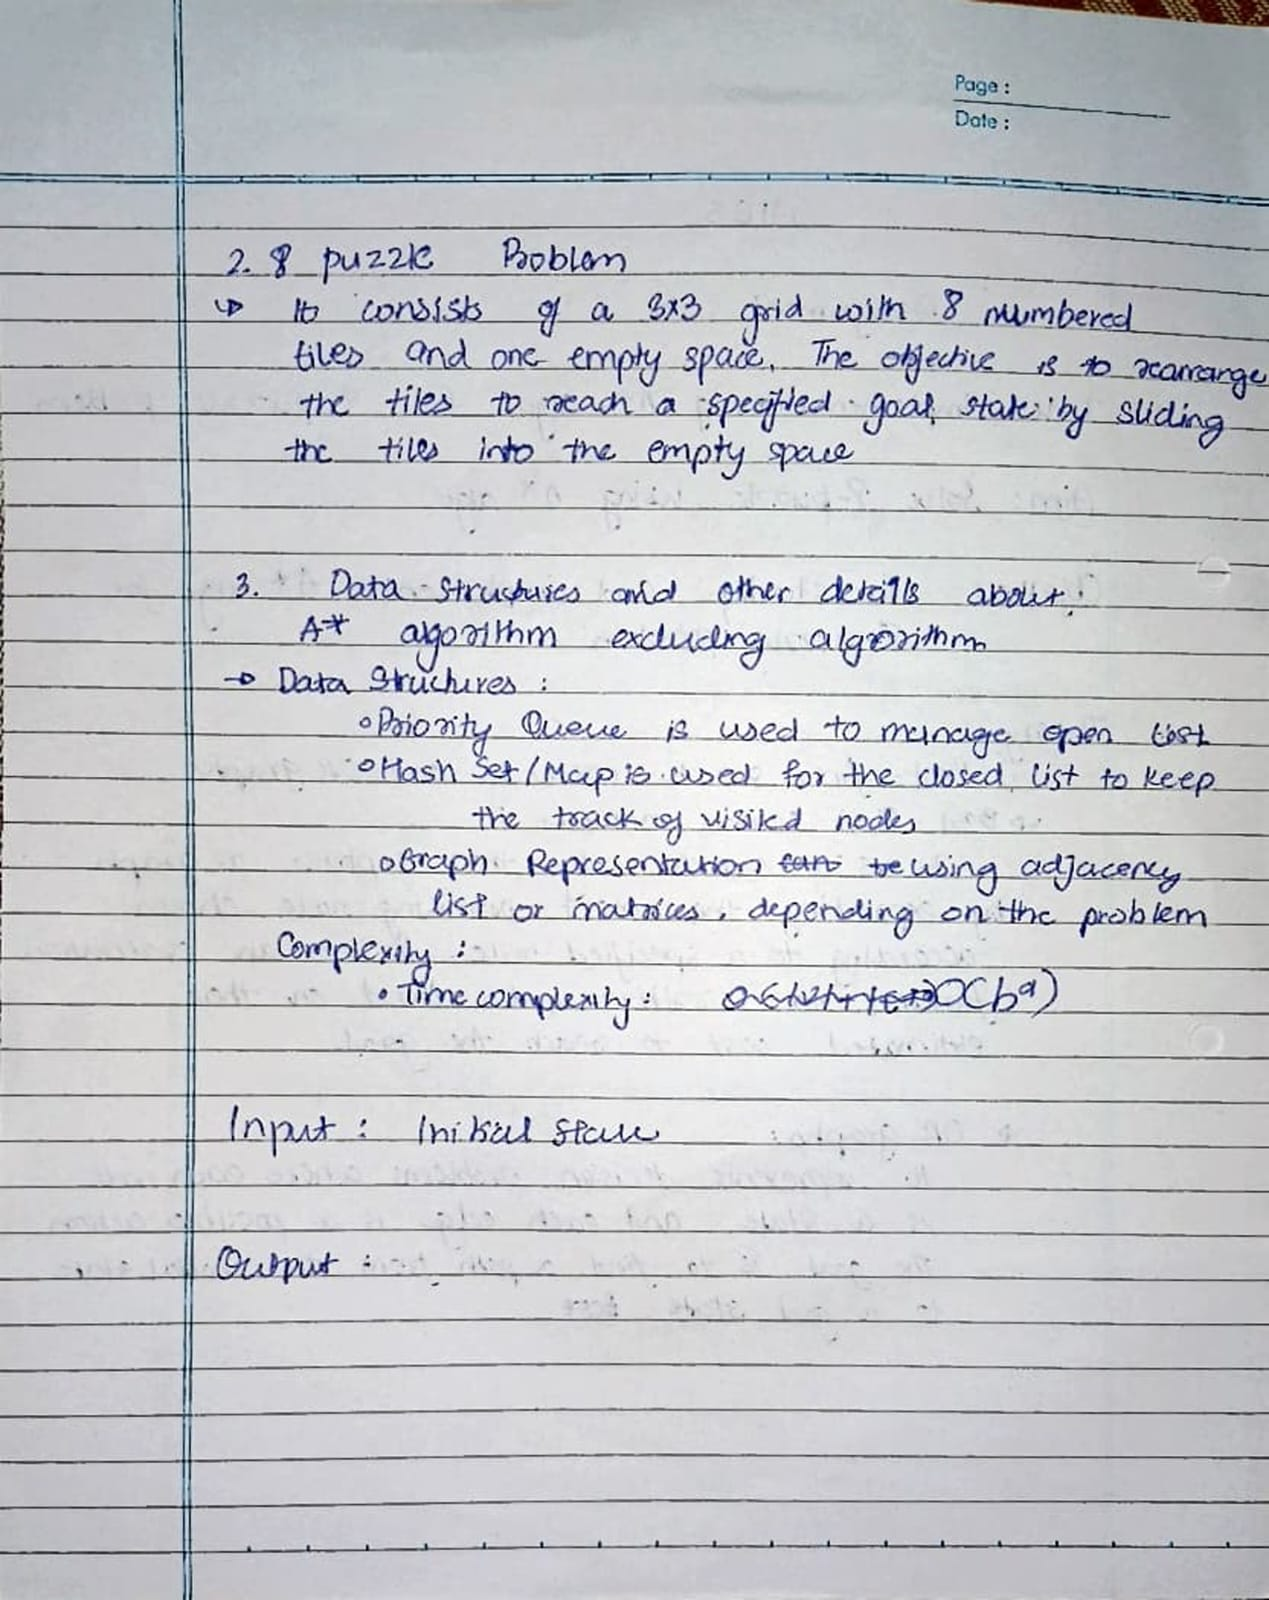 Page :
Date :
2. 8 puzzle Problem
→ It consists of a 3x3 grid with 8 numbered
tiles and one empty space. The objective is to rearrange
the tiles to reach a specified goal state by sliding
the tiles into the empty space
3. Data Structures and other details about
A* algorithm excluding algorithm
→ Data Structures :
• Priority Queue is used to manage open list
• Hash Set/Map is used for the closed list to keep
the track of visited nodes
• Graph Representation can be using adjacency
list or matrices, depending on the problem
Complexity :
• Time complexity : O(b^d)
Input : Initial State
Output :